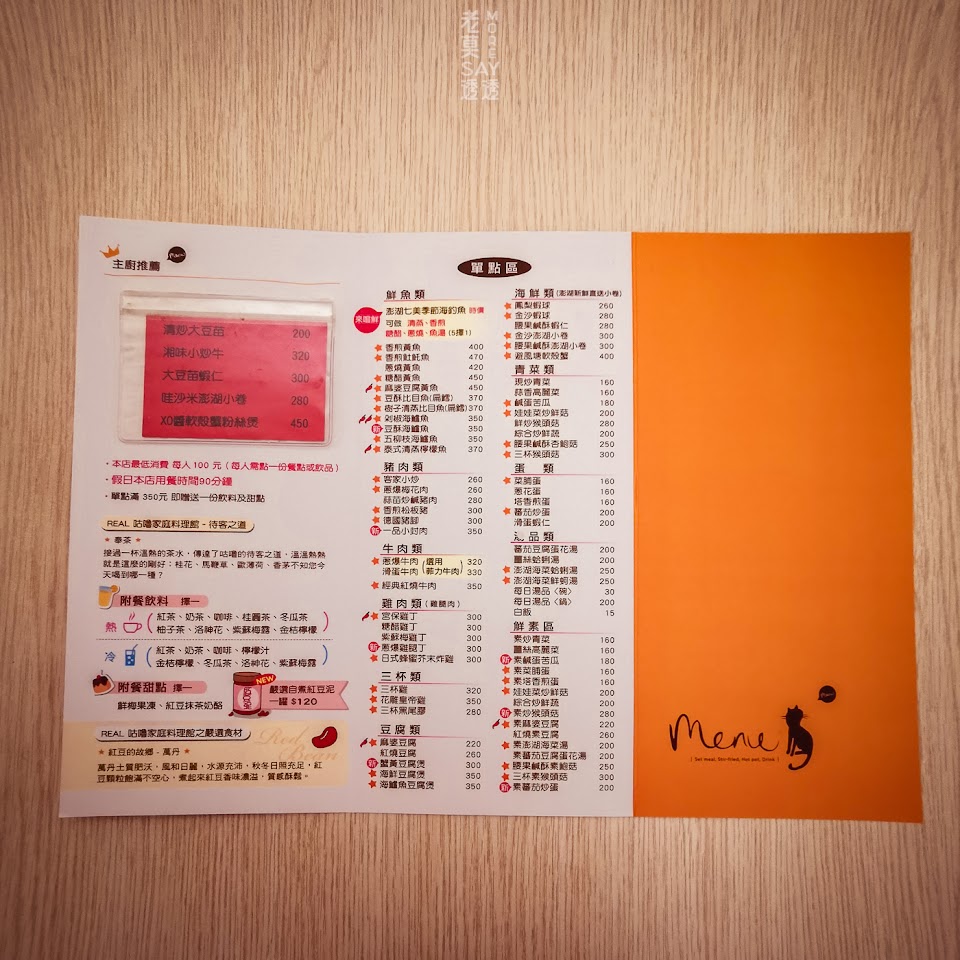 老莫SAY透透
MORE
主廚推薦
清炒大豆苗 200
湘味小炒牛 320
大豆苗蝦仁 300
哇沙米澎湖小卷 280
XO醬軟殼蟹粉絲煲 450
・本店最低消費 每人100元（每人需點一份餐點或飲品）
・假日本店用餐時間90分鐘
・單點滿 350元 即贈送一份飲料及甜點
REAL 咕嚕家庭料理館 - 待客之道
★ 奉茶 ★
接過一杯溫熱的茶水，傳達了咕嚕的待客之道，溫溫熱熱
就是這麼的剛好：桂花、馬鞭草、歐薄荷、香茅不知您今
天喝到哪一種？
附餐飲料 擇一
熱 紅茶、奶茶、咖啡、桂圓茶、冬瓜茶
柚子茶、洛神花、紫蘇梅露、金桔檸檬
冷 紅茶、奶茶、咖啡、檸檬汁
金桔檸檬、冬瓜茶、洛神花、紫蘇梅露
附餐甜點 擇一
鮮梅果凍、紅豆抹茶奶酪
NEW
嚴選自煮紅豆泥
一罐 $120
REAL 咕嚕家庭料理館之嚴選食材
Red Bean
★ 紅豆的故鄉 - 萬丹 ★
萬丹土質肥沃、風和日麗，水源充沛，秋冬日照充足，紅
豆顆粒飽滿不空心，煮起來紅豆香味濃溢，質感酥鬆。
單點區
鮮魚類
來嚐鮮
澎湖七美季節海釣魚 時價
可做 清蒸、香煎
糖醋、蔥燒、魚湯 (5擇1)
★香煎黃魚 400
★香煎魟魠魚 470
蔥燒黃魚 420
★糖醋黃魚 450
★麻婆豆腐黃魚 450
★豆酥比目魚(扁鱈) 370
★樹子清蒸比目魚(扁鱈) 370
★剁椒海鱸魚 350
新豆酥海鱸魚 350
★五柳枝海鱸魚 350
★泰式清蒸檸檬魚 370
豬肉類
★客家小炒 260
★蔥爆梅花肉 260
蒜苗炒鹹豬肉 280
★香煎松板豬 300
★德國豬腳 300
新一品小封肉 350
牛肉類
★蔥爆牛肉 320
滑蛋牛肉 330
(選用菲力牛肉)
★經典紅燒牛肉 350
雞肉類 (雞腿肉)
★宮保雞丁 300
糖醋雞丁 300
紫蘇梅雞丁 300
新蔥爆雞腿丁 300
★日式蜂蜜芥末炸雞 300
三杯類
★三杯雞 320
★花雕皇帝雞 350
★三杯黑尾膠 280
豆腐類
★麻婆豆腐 220
紅燒豆腐 260
新蟹黃豆腐煲 300
★海鮮豆腐煲 350
★海鱸魚豆腐煲 350
海鮮類 (澎湖新鮮直送小卷)
★鳳梨蝦球 260
★金沙蝦球 280
腰果鹹酥蝦仁 280
★金沙澎湖小卷 300
★腰果鹹酥澎湖小卷 300
★避風塘軟殼蟹 400
青菜類
現炒青菜 160
蒜香高麗菜 160
★鹹蛋苦瓜 180
★娃娃菜炒鮮菇 200
鮮炒猴頭菇 280
綜合炒鮮蔬 200
★腰果鹹酥杏鮑菇 250
★三杯猴頭菇 300
蛋 類
★菜脯蛋 160
蔥花蛋 160
塔香煎蛋 160
★蕃茄炒蛋 200
滑蛋蝦仁 200
湯品類
蕃茄豆腐蛋花湯 200
薑絲蛤蜊湯 200
★澎湖海菜蛤蜊湯 250
★澎湖海菜鮮蚵湯 250
每日湯品〈碗〉 30
每日湯品〈鍋〉 200
白飯 15
鮮素區
素炒青菜 160
薑絲高麗菜 160
新素鹹蛋苦瓜 180
★素菜脯蛋 160
★素塔香煎蛋 160
★娃娃菜炒鮮菇 200
綜合炒鮮蔬 200
新素炒猴頭菇 280
★素麻婆豆腐 220
紅燒素豆腐 260
★素澎湖海菜湯 200
素蕃茄豆腐蛋花湯 200
★腰果鹹酥素鮑菇 250
★三杯素猴頭菇 300
新素蕃茄炒蛋 200
Menu
[ Set meal, Stir-fried, Hot pot, Drink ]